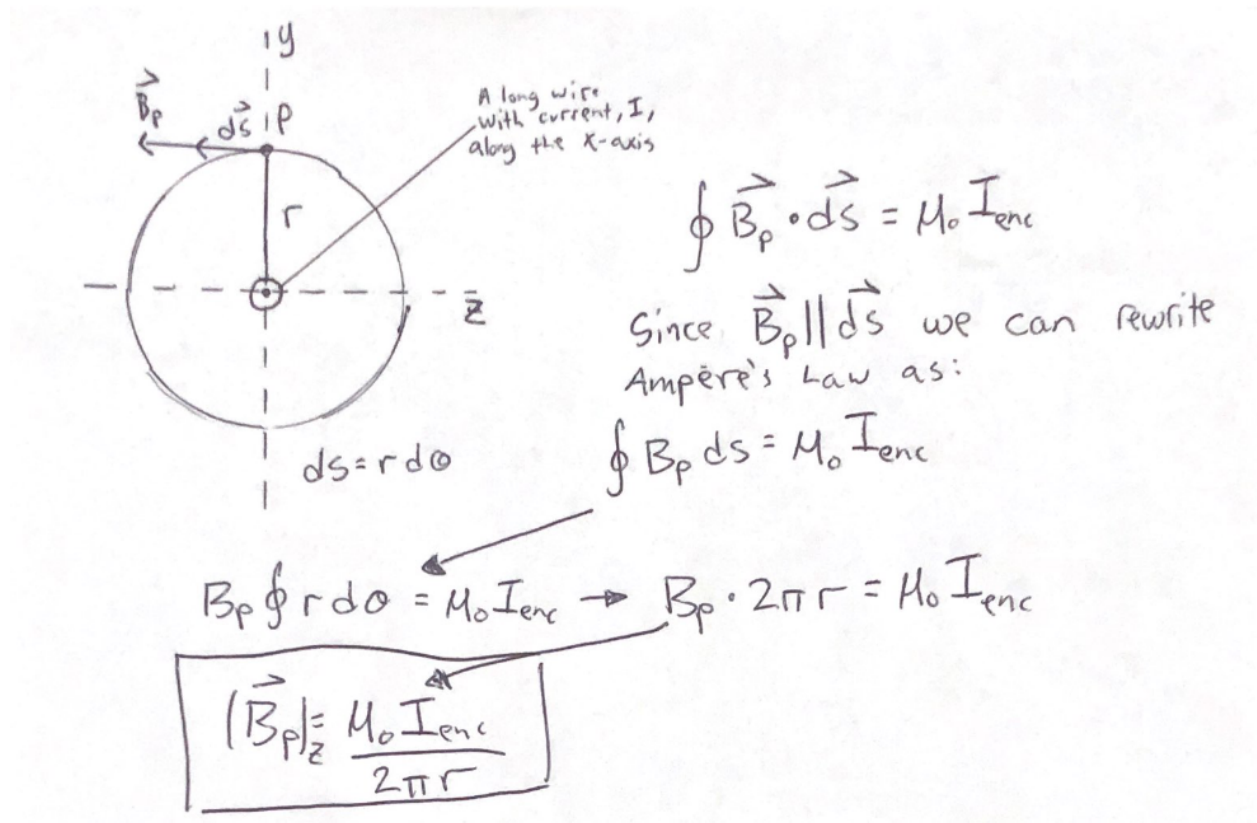 y
B⃗ₚ
ds⃗
P
A long wire
with current, I,
along the x-axis
r
z
∮ B⃗ₚ · ds⃗ = μ₀ I_enc
Since B⃗ₚ || ds⃗ we can rewrite
Ampère's Law as:
ds = r dθ
∮ Bₚ ds = μ₀ I_enc
Bₚ ∮ r dθ = μ₀ I_enc → Bₚ · 2π r = μ₀ I_enc
|B⃗ₚ|_z = μ₀ I_enc
2π r